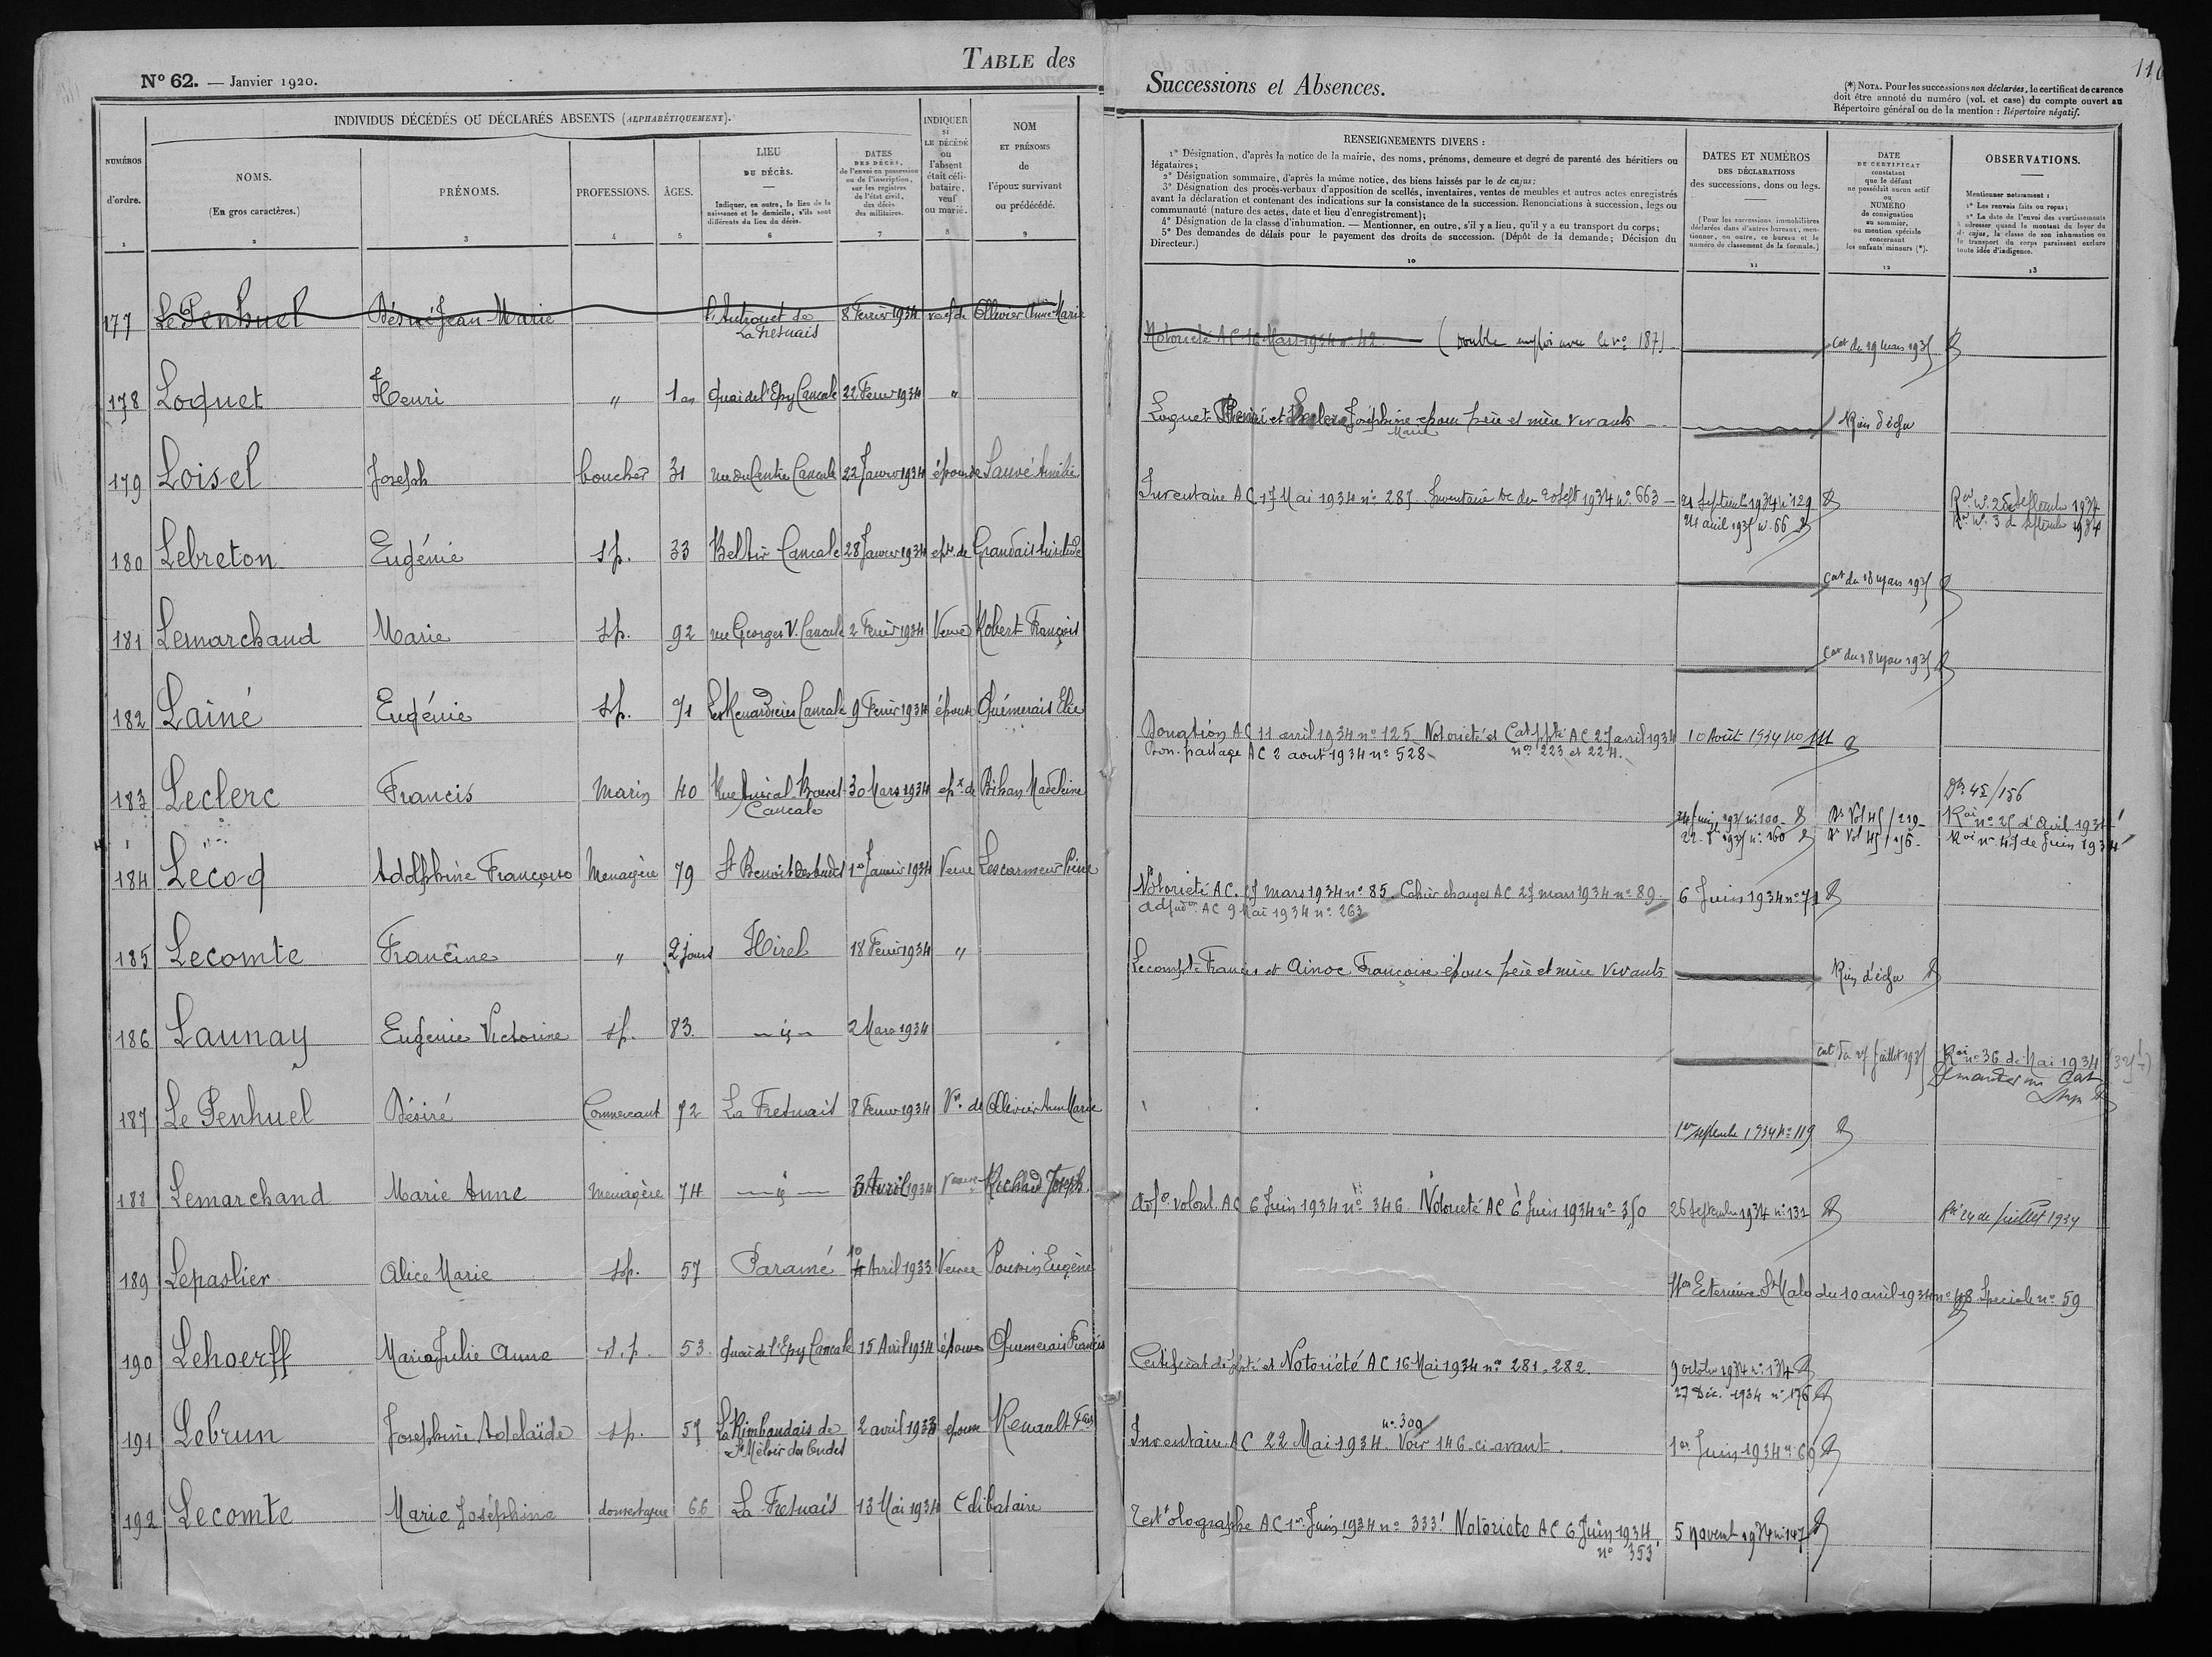 TABLE des
N° 62. — Janvier 1920.
INDIVIDUS DÉCÉDÉS OU DÉCLARÉS ABSENTS (ALPHABÉTIQUEMENT).
NUMÉROS d'ordre. 1
NOMS. (En gros caractères.) 2
PRÉNOMS. 3
PROFESSIONS. 4
ÂGES. 5
LIEU DU DÉCÈS. — Indiquer, en outre, le lieu de la naissance et le domicile, s'ils sont différents du lieu du décès. 6
DATES DES DÉCÈS, de l'envoi en possession ou de l'inscription, sur les registres de l'état civil, des décès des militaires. 7
INDIQUER si LE DÉCÉDÉ ou l'absent était célibataire, veuf ou marié. 8
NOM ET PRÉNOMS de l'époux survivant ou prédécédé. 9
177 Le Penhuel Désiré Jean-Marie La Fresnais 8 Février 1934 veuf de Ollivier Anne Marie
178 Loquet Henri " 1 an quai de l'Epy Cancale 22 Fevrier 1934 "
179 Loisel Joseph boucher 31 rue du Centre Cancale 22 Janvier 1934 époux de Sauvé Amélie
180 Lebreton Eugénie sp. 33 Bel Air Cancale 28 Janvier 1934 epse de Grandais
181 Lemarchand Marie sp. 92 rue Georges V. Cancale 2 Février 1934 Veuve Robert François
182 Lainé Eugénie sp. 71 Les Renardières Cancale 9 Février 1934 épouse Quémerais Elie
183 Leclerc Francis marin 40 Rue Amiral Cancale 30 Mars 1934 epx de Bihan Madeleine
184 Lecoq Adolphine Françoise Menagère 79 St Benoit des ondes 1er Janvier 1934 Veuve Lescarmeur Pierre
185 Lecomte Francine " 2 jours Hirel 18 Fevrier 1934 "
186 Launay Eugenie Victorine sp. 83 — id — 2 Mars 1934
187 Le Penhuel Désiré Commercant 72 La Fresnais 8 Fevrier 1934 Vf de Ollivier Anne Marie
188 Lemarchand Marie Anne menagère 74 — id — 3 Avril 1934 Veuve Richard Joseph
189 Lepaslier Alice Marie sp. 57 Paramé 10 Avril 1933 Veuve Eugène
190 Lehoerff Maria Julie Anne s.p. 53 quai de l'Epy Cancale 15 Avril 1934 épouse Quemerais Francis
191 Lebrun Joséphine Adelaïde sp. 57 La Rimbaudais de St Méloir des Ondes 2 avril 1933 epouse Renault Fois
192 Lecomte Marie Joséphine domestique 66 La Fresnais 13 Mai 1934 Celibataire
Successions et Absences.
110
(*) NOTA. Pour les successions non déclarées, le certificat de carence
doit être annoté du numéro (vol. et case) du compte ouvert au
Répertoire général ou de la mention : Répertoire négatif.
RENSEIGNEMENTS DIVERS :
1° Désignation, d'après la notice de la mairie, des noms, prénoms, demeure et degré de parenté des héritiers ou légataires;
2° Désignation sommaire, d'après la même notice, des biens laissés par le de cujus;
3° Désignation des procès-verbaux d'apposition de scellés, inventaires, ventes de meubles et autres actes enregistrés
avant la déclaration et contenant des indications sur la consistance de la succession. Renonciations à succession, legs ou
communauté (nature des actes, date et lieu d'enregistrement);
4° Désignation de la classe d'inhumation. — Mentionner, en outre, s'il y a lieu, qu'il y a eu transport du corps;
5° Des demandes de délais pour le payement des droits de succession. (Dépôt de la demande; Décision du
Directeur.)
10
DATES ET NUMÉROS DES DÉCLARATIONS des successions, dons ou legs. — (Pour les successions immobilières déclarées dans d'autres bureaux, mentionner, en outre, ce bureau et le numéro de classement de la formule.) 11
DATE DU CERTIFICAT constatant que le défunt ne possédait aucun actif ou NUMÉRO de consignation au sommier, ou mention spéciale concernant les enfants mineurs (*). 12
OBSERVATIONS. Mentionner notamment : 1° Les renvois faits ou reçus; 2° La date de l'envoi des avertissements à adresser quand le montant du loyer du de cujus, la classe de son inhumation ou le transport du corps paraissent exclure toute idée d'indigence. 13
Notoriété AC 16 Mars 1934 n° 42 (Double emploi avec le n° 187) Cat du 19 mars 1935
Loquet Henri et Leclerc Joséphine Marie époux père et mère vivants Rien d'échu
Inventaire AC 17 Mai 1934 n° 287. Inventaire AC du 20 sept 1934 n° 663 21 Septembre 1934 n° 129
24 avril 1935 n° 66
Roi n° 2 de Septembre 1934
Roi n° 3 de Septembre 1934
Cat du 18 mars 1935
Cat du 18 mars 1935
Donation AC 11 avril 1934 n° 125 Notoriété et Cat ppté AC 27 avril 1934 10 Août 1934 no 111
partage AC 2 aout 1934 n° 528 nos 223 et 224.
45/156
n° 100 Vol 45/219 Roi n° 25 d'Avril 1934
22 1935 n° 160 Vol 45/156 Roi n° 45 de Juin 1934
Notorieté AC. 27 mars 1934 n° 85. Cahier charges AC 27 mars 1934 n° 89. 6 Juin 1934 n° 71
adjudon AC 9 Mai 1934 n° 263
Lecompte Francis et Ainoc Françoise époux père et mère vivants Rien d'échu
Cat du 27 Juillet 1935 Roi n° 36 de Mai 1934
Demander un Cat
1er septembre 1934 n° 119
volont. AC 6 Juin 1934 n° 346. Notorieté AC 6 Juin 1934 n° 350 26 Septembre 1934 n° 131 Roi 24 de juillet 1934
Son Exterieure St Malo du 10 avril 1934 n° 48 Speciale n° 59
Certificat de ppté et Notoriété AC 16 Mai 1934 nos 281, 282. 9 octobre 1934 n° 134
27 Déc. 1934 n° 176
n° 309
Inventaire AC 22 Mai 1934. Voir 146 ci-avant. 1er Juin 1934 n° 69
Test olographe AC 1er Juin 1934 n° 333. Notoriete AC 6 Juin 1934 5 Novemb 1934 n° 147
n° 353